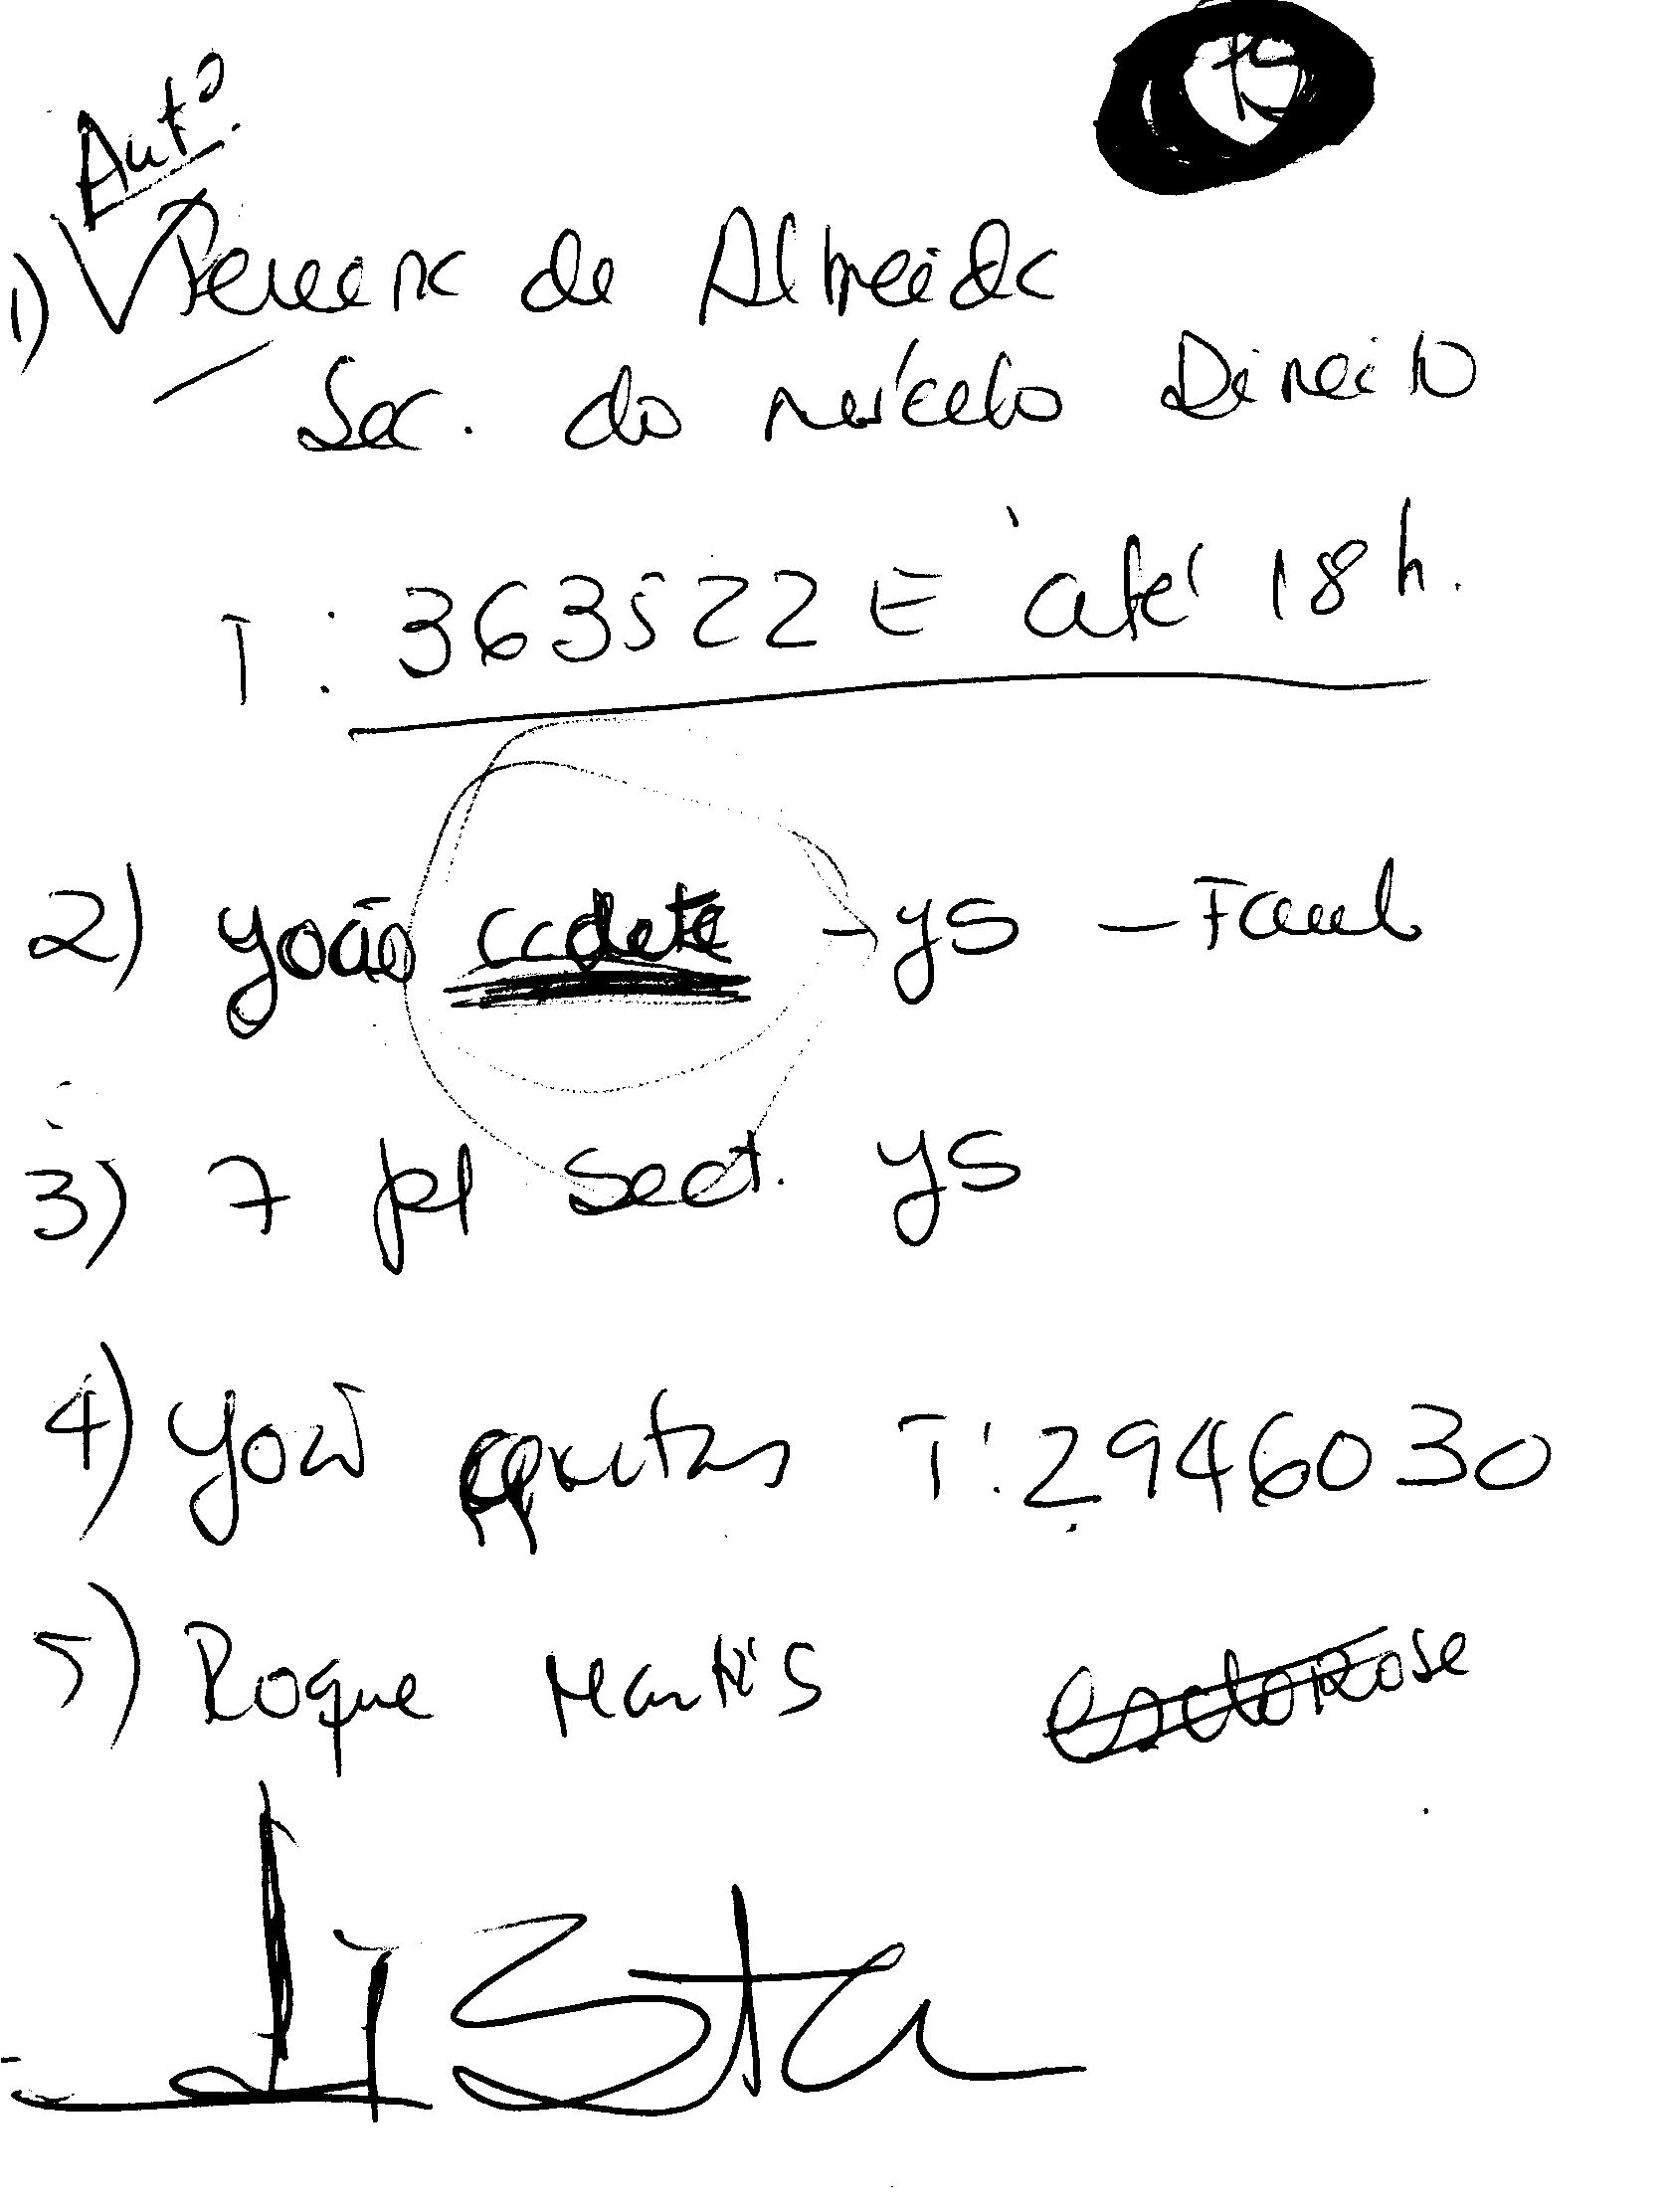 Autº.
1) Pereira de Almeida
Sec. do núcleo Direito
T: 363522E até 18h.
2) João Cadete - JS - Faul
3) 7 pel sect. JS
4) João T: 2946030
5) Roque Martins
Lista